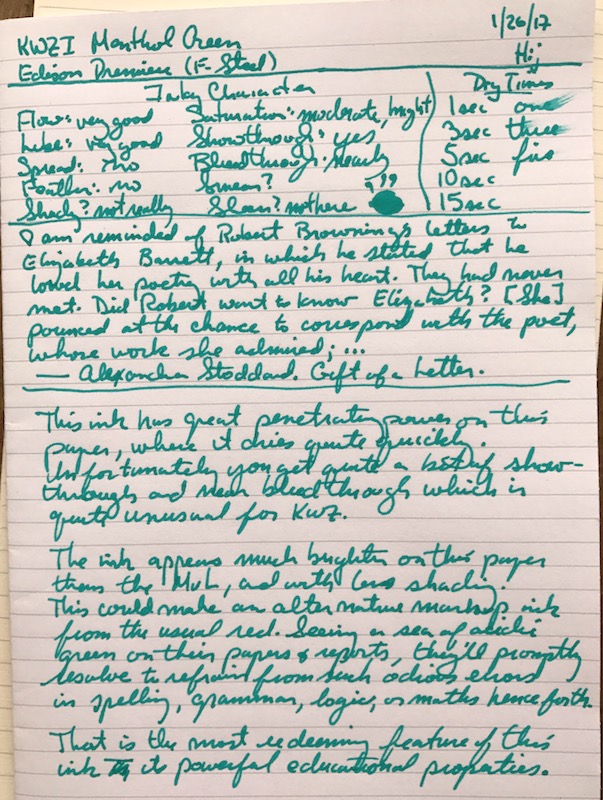 1/26/17
KWZI Menthol Green
Hi;
Edison Premiere (F-Steel)
Inky Character
Dry Times
Flow: very good
Saturation: moderate, bright
1 sec one
Lube: very good
Showthrough: yes
3 sec three
Spread: no
Bleedthrough: nearly
5 sec five
Feather: no
Smear?
10 sec
Shady? not really
Sheen? not here
15 sec
I am reminded of Robert Browning's letters to
Elizabeth Barrett, in which he stated that he
loved her poetry with all his heart. They had never
met. Did Robert want to know Elizabeth? [She]
pounced at the chance to correspond with the poet,
whose work she admired; ...
— Alexandra Stoddard. Gift of a Letter.
This ink has great penetrating power on this
paper, where it dries quite quickly.
Unfortunately you get quite a bit of show-
through and near bleedthrough which is
quite unusual for KWZ.
The ink appears much brighter on this paper
than the MvL, and with less shading.
This could make an alternative markup ink
from the usual red. Seeing a sea of acidic
green on their papers & reports, they'll promptly
resolve to refrain from such odious errors
in spelling, grammar, logic, or maths henceforth.
That is the most redeeming feature of this
ink its powerful educational properties.